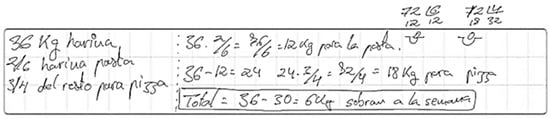 72 |6
12 12
72 |4
18 32
36 Kg harina
2/6 harina pasta
3/4 del resto para pizza
36 · 2/6 = 76/6 = 12 Kg para la pasta.
36 - 12 = 24 24 · 3/4 = 82/4 = 18 Kg para pizza
Total = 36 - 30 = 6 Kg sobran a la semana